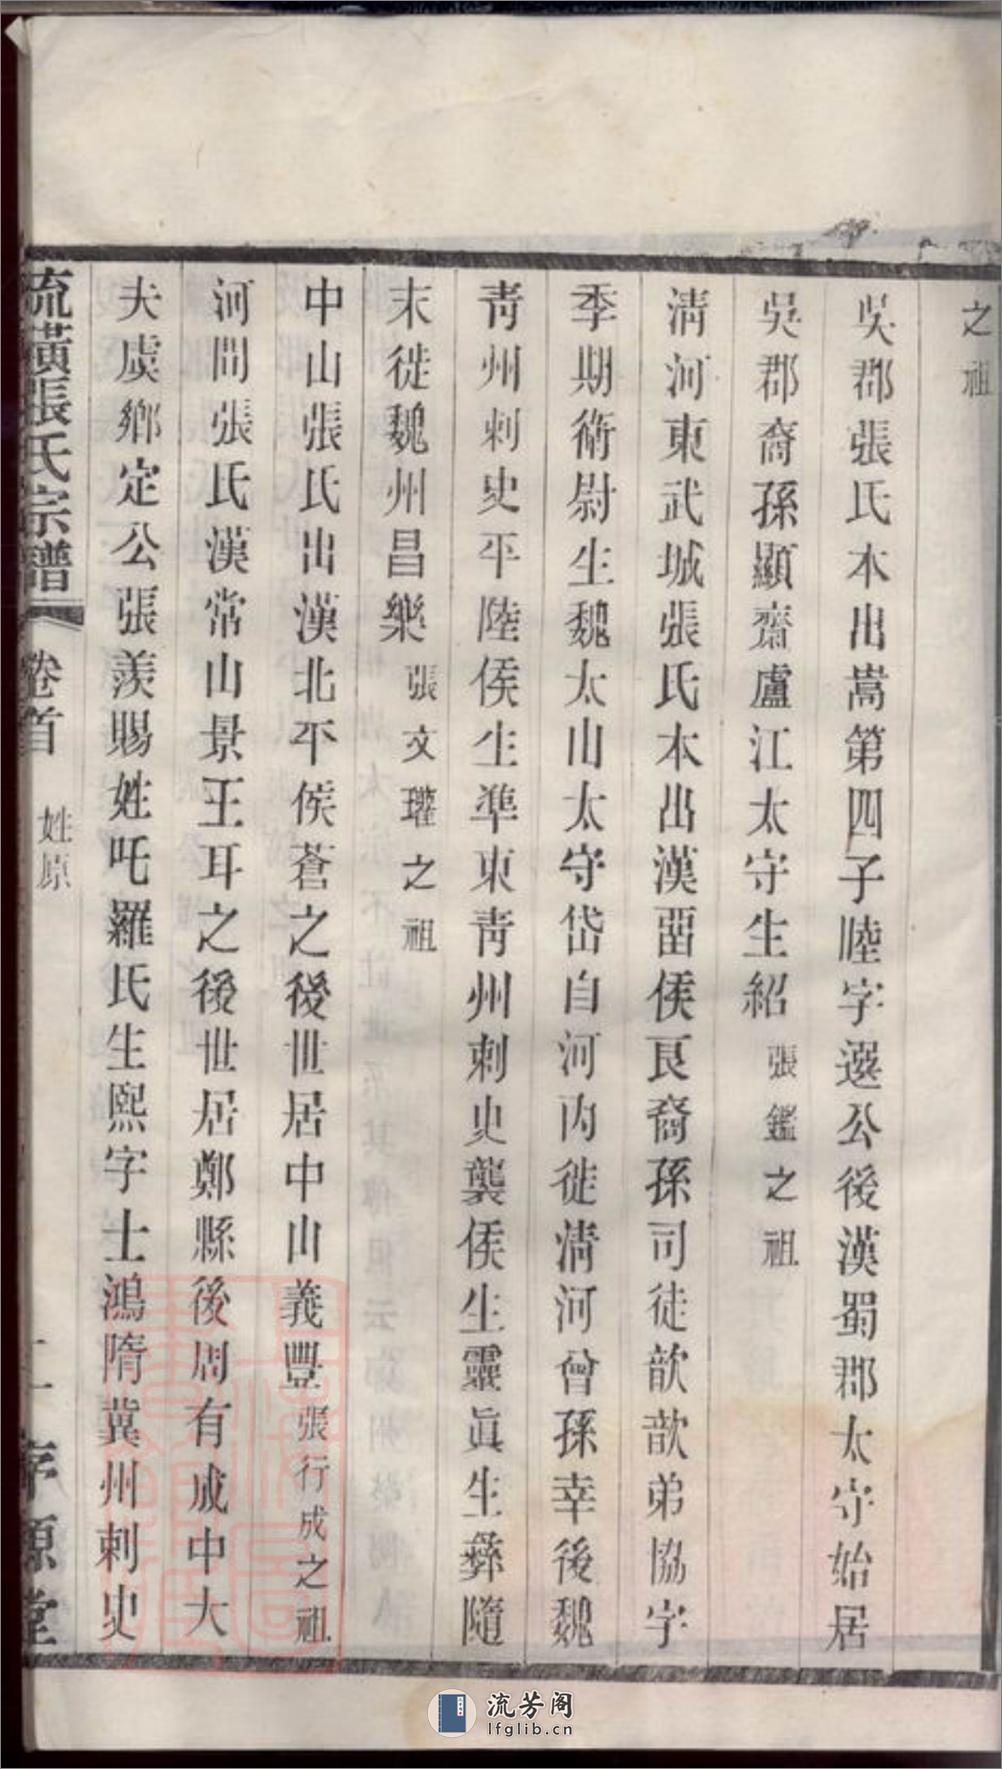 之祖
吳郡張氏本出嵩第四子睦字選公後漢蜀郡太守始居
吳郡裔孫顯齋盧江太守生紹張鑑之祖
淸河東武城張氏本出漢畱侯良裔孫司徒歆歆弟協字
季期衛尉生魏太山太守岱自河內徙淸河曾孫幸後魏
靑州刺史平陸侯生準東靑州刺史襲侯生靈眞生彝隨
末徙魏州昌樂張文瓘之祖
中山張氏出漢北平侯蒼之後世居中山義豐張行成之祖
河間張氏漢常山景王耳之後世居鄭縣後周有成中大
夫虞鄉定公張羨賜姓叱羅氏生熙字士鴻隋冀州刺史
流璜張氏宗譜
卷首
姓原
二
序源堂
流芳阁
lfglib.cn